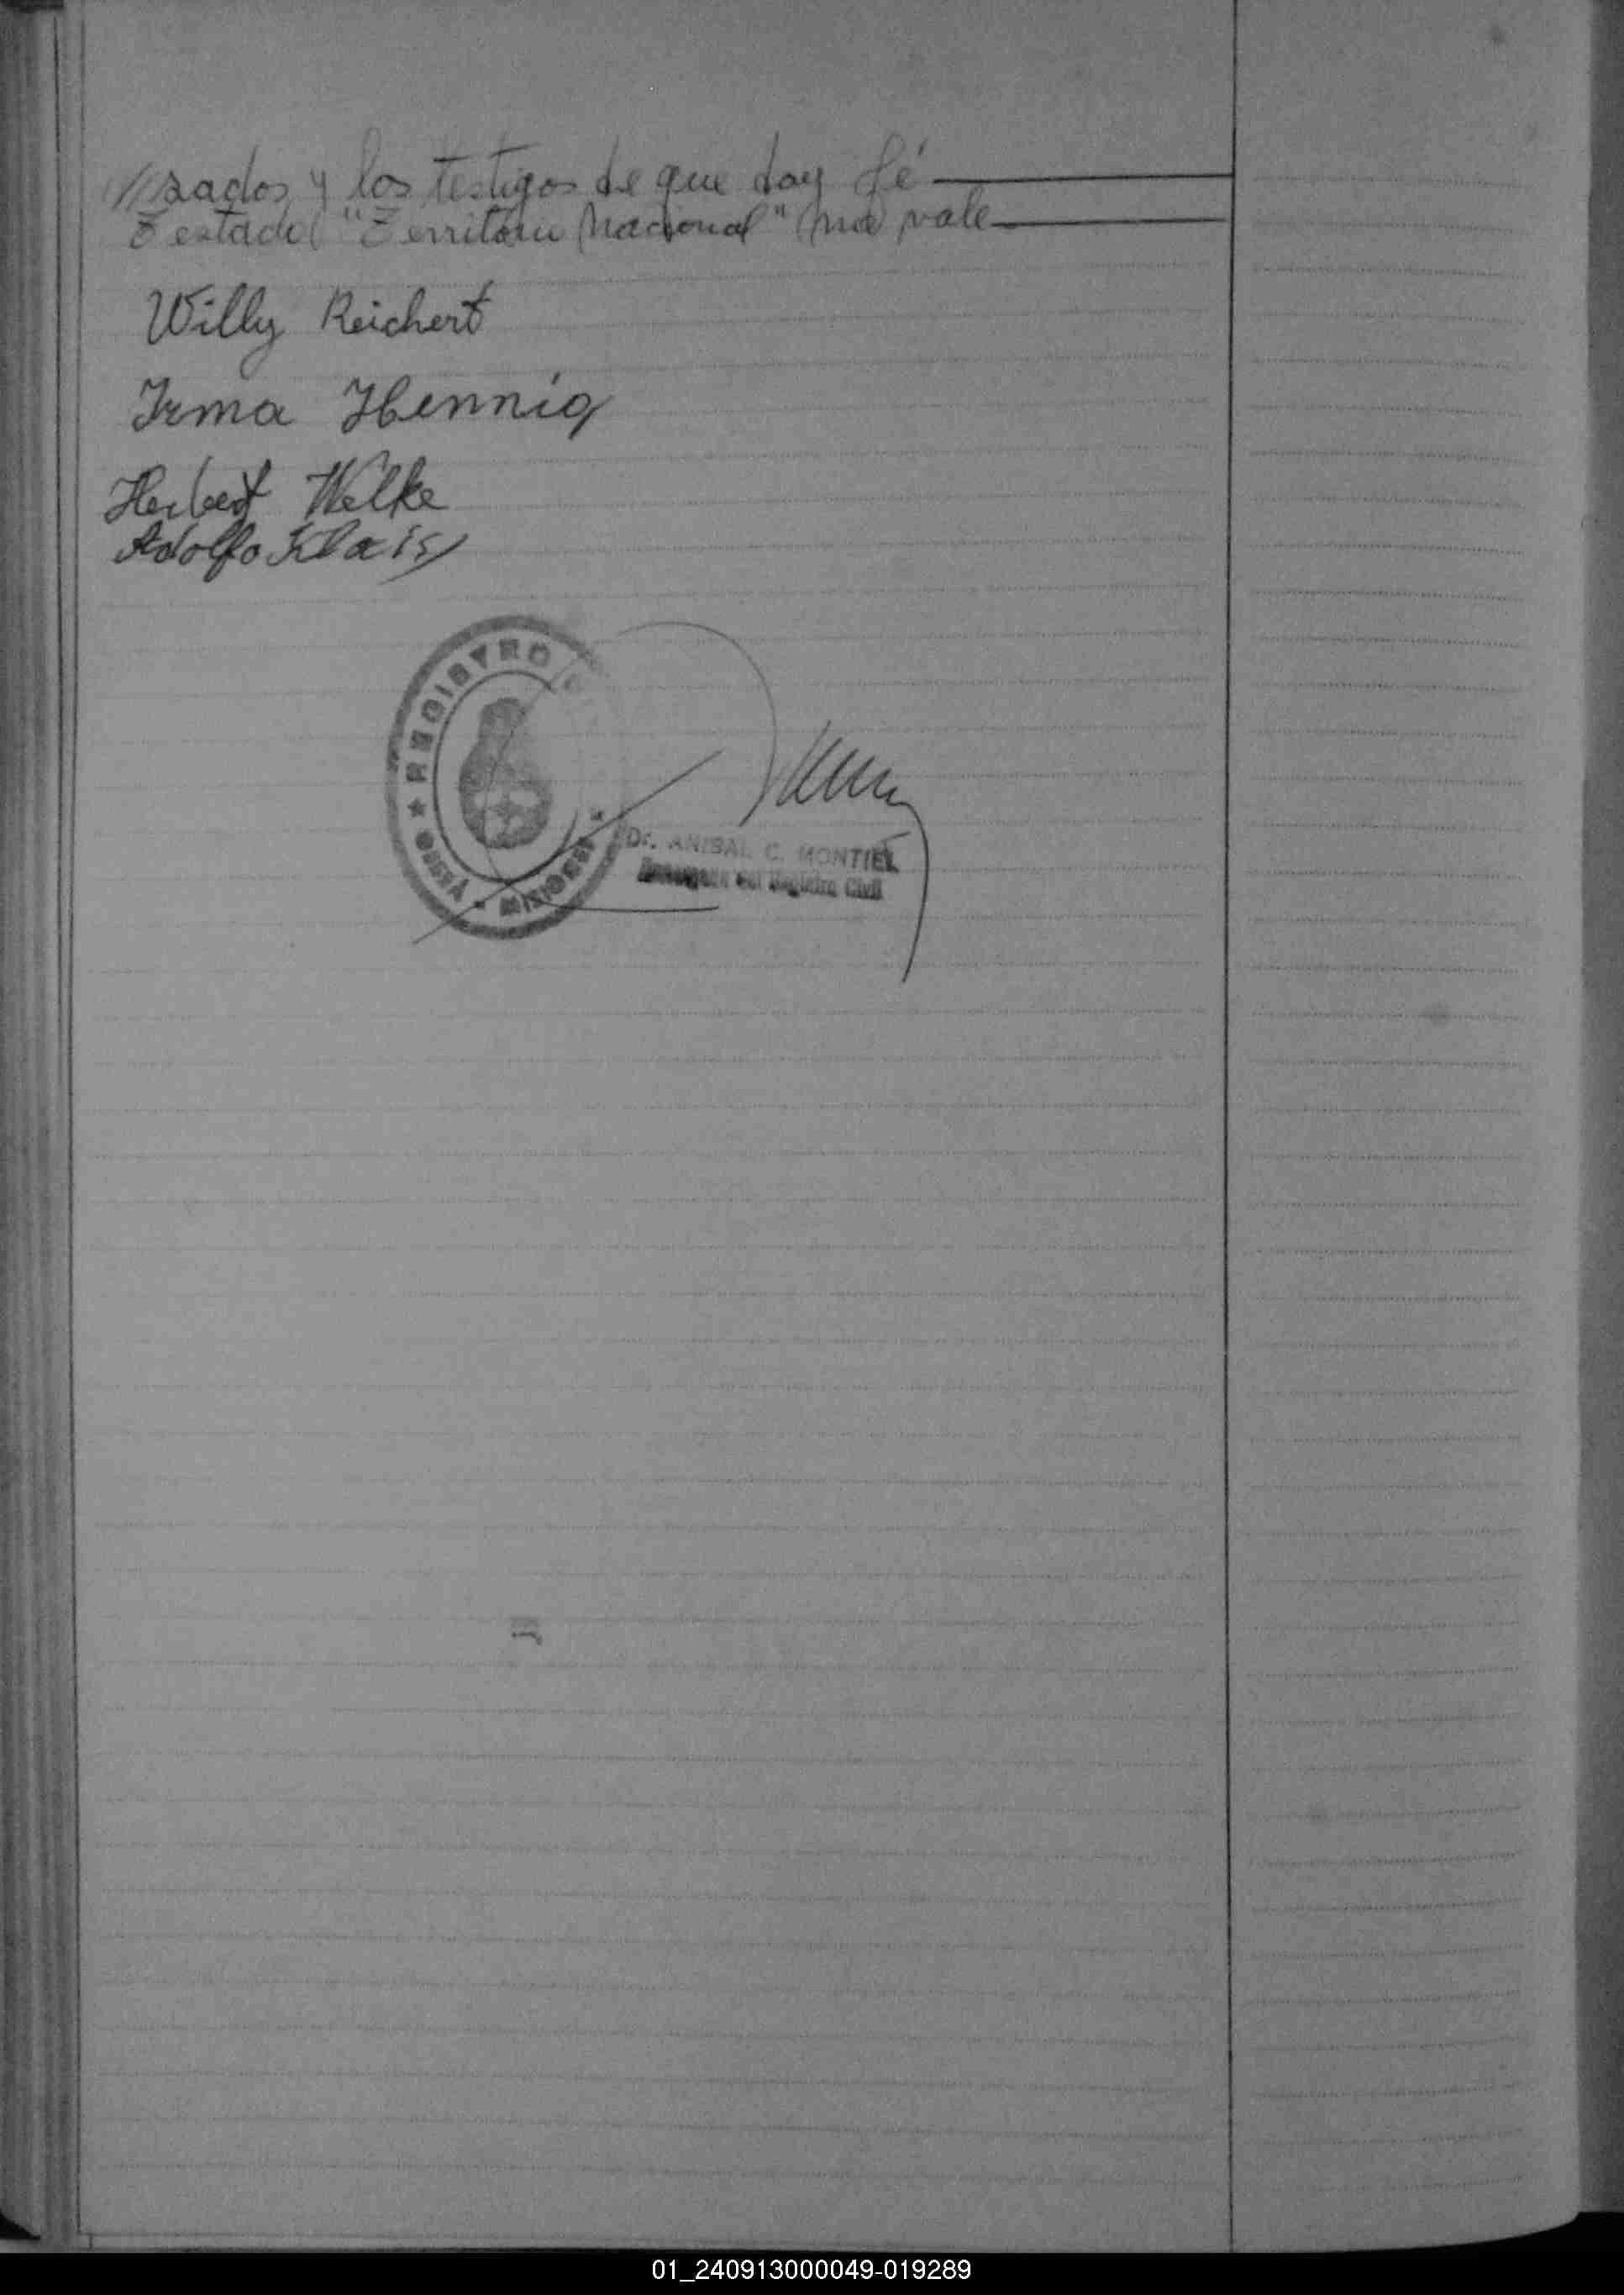 //sados y los testigos de que doy fé
Testado "Territorio Nacional" no vale
Willy Reichert
Irma Hennig
Herbert Welke
Adolfo Klais
REGISTRO
OBERÁ MISIONES
Dr. ANIBAL C. MONTIEL
Encargado del Registro Civil
01_240913000049-019289